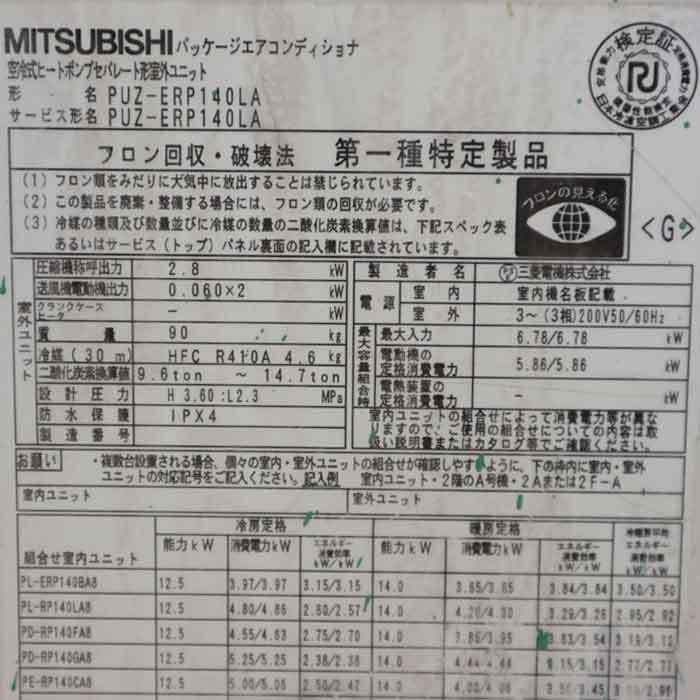 MITSUBISHI パッケージエアコンディショナ
空冷式ヒートポンプセパレート形室外ユニット
形 名 PUZ-ERP140LA
サービス形名 PUZ-ERP140LA
検定証
日本冷凍空調工業会
フロン回収・破壊法 第一種特定製品
(1) フロン類をみだりに大気中に放出することは禁じられています。
(2) この製品を廃棄・整備する場合には、フロン類の回収が必要です。
(3) 冷媒の種類及び数量並びに冷媒の数量の二酸化炭素換算値は、下記スペック表
あるいはサービス(トップ)パネル裏面の記入欄に記載されています。
フロンの見える化
<G>
室外ユニット
圧縮機称呼出力 2.8 kW
送風機電動機出力 0.060×2 kW
クランクケースヒータ - kW
質量 90 kg
冷媒(30m) HFC R410A 4.6 kg
二酸化炭素換算値 9.6ton ~ 14.7ton
設計圧力 H 3.60:L2.3 MPa
防水保護 IPX4
製造番号
製造者名 三菱電機株式会社
電源 室内 室内機名板記載
室外 3~(3相)200V50/60Hz
最大容量組合時
最大入力 6.78/6.78 kW
電動機の定格消費電力 5.86/5.86 kW
電熱装置の定格消費電力 - kW
室内ユニットの組合せによって消費電力等が異な
りますので、ご使用の組合せについての内容は取
扱い説明書またはカタログ等でご確認ください。
お願い ・複数台設置される場合、個々の室内・室外ユニットの組合せが確認しやすいように、下の枠内に室内・室外
ユニットの対応記号をご記入ください。記入例 室内ユニット・2階のA号機・2Aまたは2F-A
室内ユニット 室外ユニット
組合せ室内ユニット 冷房定格 暖房定格 冷暖房平均
能力kW 消費電力kW エネルギー消費効率kW/kW 能力kW 消費電力kW エネルギー消費効率kW/kW エネルギー消費効率kW/kW
PL-ERP140BA8 12.5 3.97/3.97 3.15/3.15 14.0 3.65/3.65 3.84/3.84 3.50/3.50
PL-RP140LA8 12.5 4.80/4.86 2.60/2.57 14.0 4.26/4.30 3.29/3.26 2.95/2.92
PD-RP140FA8 12.5 4.55/4.63 2.75/2.70 14.0 3.86/3.95 3.63/3.54 3.19/3.12
PD-RP140GA8 12.5 5.25/5.25 2.38/2.38 14.0 4.44/4.44 3.15/3.15 2.77/2.77
PE-RP140CA8 12.5 5.00/5.06 2.50/2.47 14.0